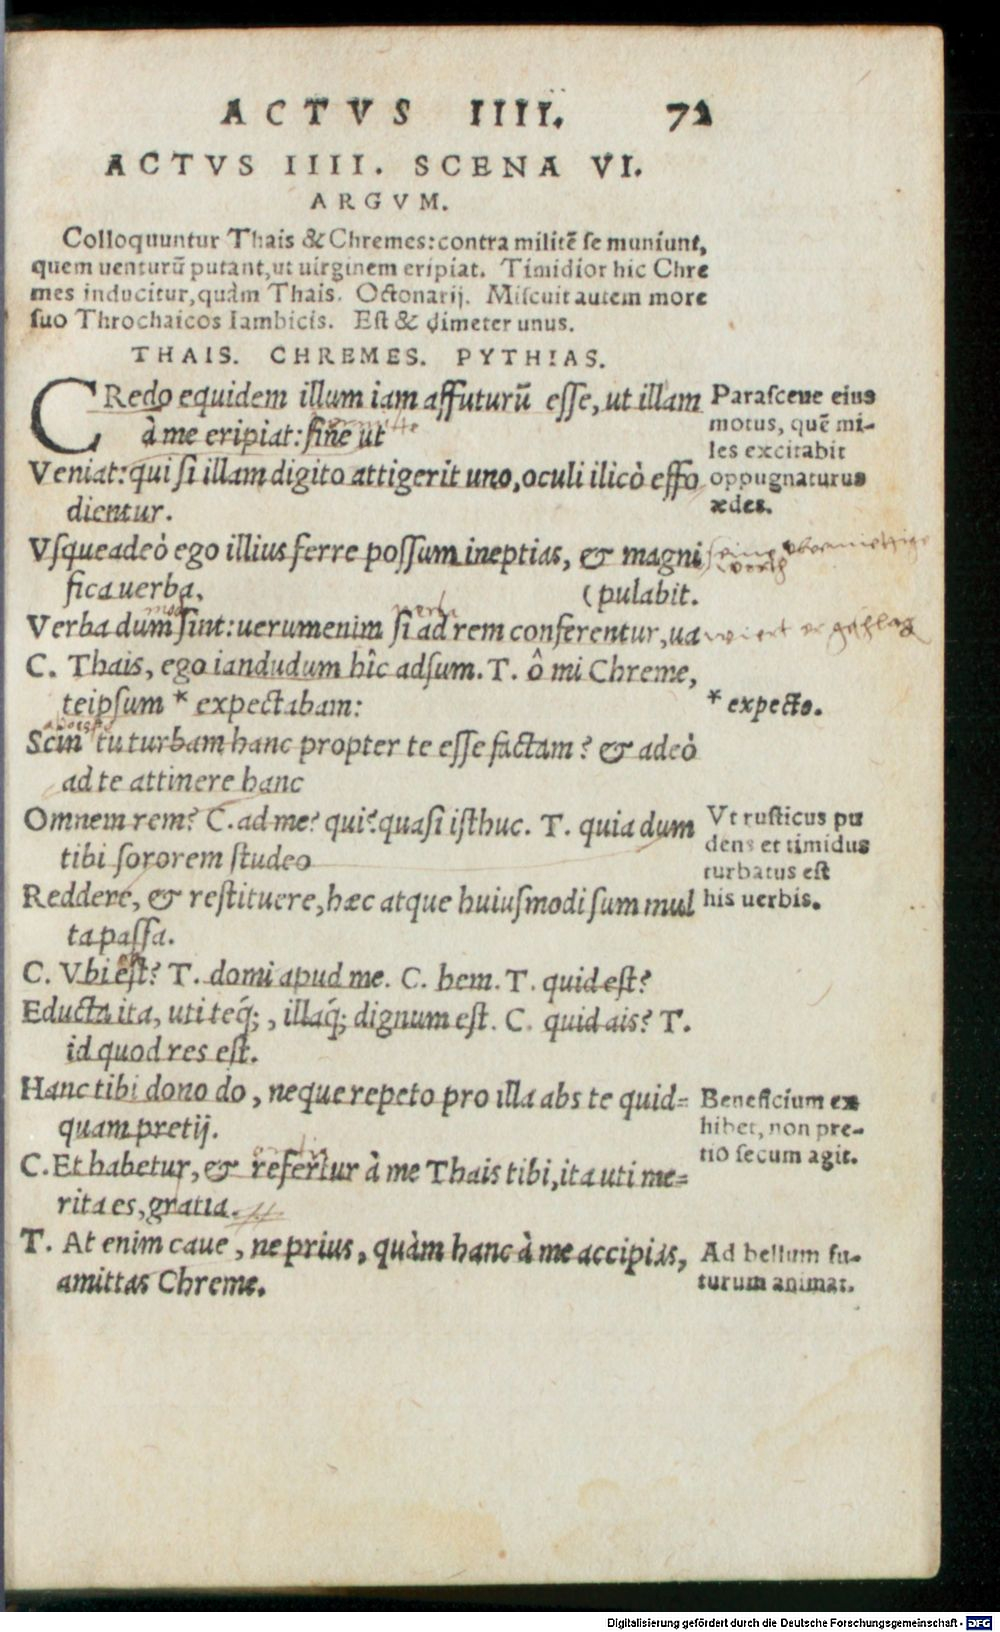 ACTVS IIII. 72
ACTVS IIII. SCENA VI.
ARGVM.
Colloquuntur Thais & Chremes: contra militē se muniunt,
quem uenturū putant, ut uirginem eripiat. Timidior hic Chre
mes inducitur, quàm Thais. Octonarij. Miscuit autem more
suo Throchaicos Iambicis. Est & dimeter unus.
THAIS. CHREMES. PYTHIAS.
CRedo equidem illum iam affuturū esse, ut illam
à me eripiat: sine ut
Veniat: qui si illam digito attigerit uno, oculi ilicò effo
dientur.
Vsqueadeò ego illius ferre possum ineptias, & magni
fica uerba,
(pulabit.
Verba dum sint: uerumenim si ad rem conferentur, ua
C. Thais, ego iandudum hîc adsum. T. ô mi Chreme,
teipsum * expectabam:
Scin tu turbam hanc propter te esse factam? & adeò
ad te attinere hanc
Omnem rem? C. ad me? qui? quasi isthuc. T. quia dum
tibi sororem studeo
Reddere, & restituere, hæc atque huiusmodi sum mul
ta passa.
C. Vbi est? T. domi apud me. C. hem. T. quid est?
Educta ita, uti teq́;, illaq́; dignum est. C. quid ais? T.
id quod res est.
Hanc tibi dono do, neque repeto pro illa abs te quid=
quam pretij.
C. Et habetur, & refertur à me Thais tibi, ita uti me=
rita es, gratia.
T. At enim caue, ne prius, quàm hanc à me accipias,
amittas Chreme.
Parasceue eius
motus, quē mi-
les excitabit
oppugnaturus
ædes.
* expecto.
Vt rusticus pu
dens et timidus
turbatus est
his uerbis.
Beneficium ex
hibet, non pre-
tio secum agit.
Ad bellum fu-
turum animat.
Digitalisierung gefördert durch die Deutsche Forschungsgemeinschaft - DFG